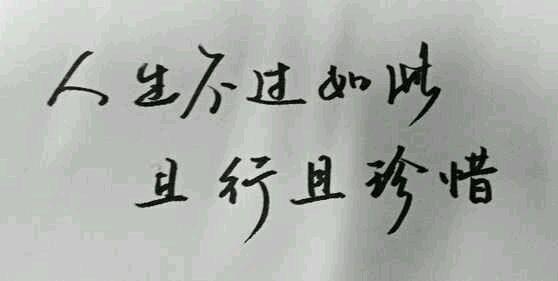 人生不过如此
且行且珍惜